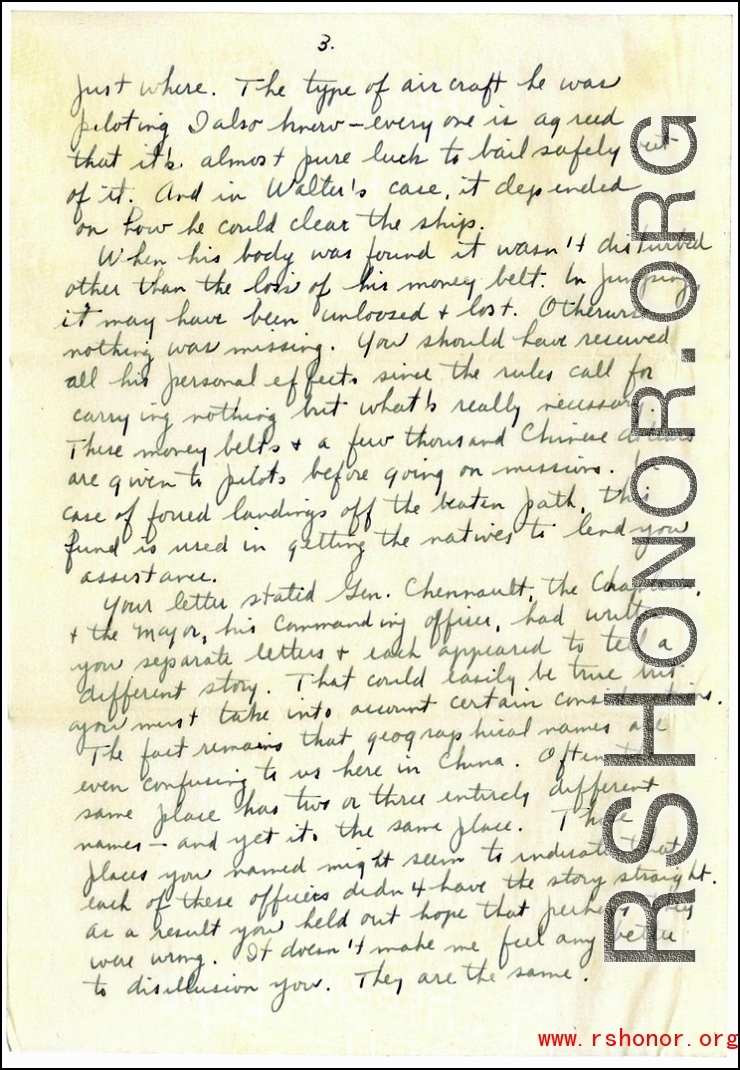 3.
just where. The type of aircraft he was
piloting I also knew — every one is agreed
that it's almost pure luck to bail safely out
of it. And in Walter's case, it depended
on how he could clear the ship.
When his body was found it wasn't disturbed
other than the loss of his money belt. In jumping,
it may have been unloosed & lost. Otherwise
nothing was missing. You should have received
all his personal effects since the rules call for
carrying nothing but what's really necessary.
These money belts & a few thousand Chinese dollars
are given to pilots before going on missions. In
case of forced landings off the beaten path, this
fund is used in getting the natives to lend you
assistance.
Your letter stated Gen. Chennault, the Chaplain,
& the Major, his commanding officer, had written
you separate letters & each appeared to tell a
different story. That could easily be true but
you must take into account certain considerations.
The fact remains that geographical names are
even confusing to us here in China. Often the
same place has two or three entirely different
names — and yet its the same place. Those
places you named might seem to indicate that
each of these officers didn't have the story straight.
As a result you held out hope that perhaps they
were wrong. It doesn't make me feel any better
to disillusion you. They are the same.
RSHONOR.ORG
www.rshonor.org